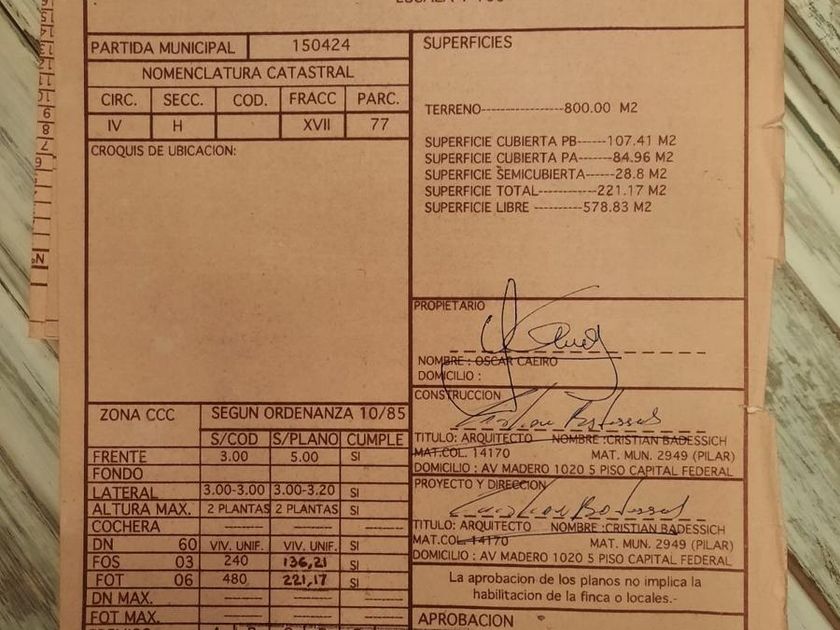 PARTIDA MUNICIPAL 150424
NOMENCLATURA CATASTRAL
CIRC. SECC. COD. FRACC PARC.
IV H XVII 77
CROQUIS DE UBICACION:
SUPERFICIES
TERRENO----------------800.00 M2
SUPERFICIE CUBIERTA PB------107.41 M2
SUPERFICIE CUBIERTA PA-------84.96 M2
SUPERFICIE SEMICUBIERTA------28.8 M2
SUPERFICIE TOTAL------------221.17 M2
SUPERFICIE LIBRE ----------578.83 M2
PROPIETARIO
NOMBRE : OSCAR CAEIRO
DOMICILIO :
CONSTRUCCION
TITULO: ARQUITECTO NOMBRE :CRISTIAN BADESSICH
MAT.COL. 14170 MAT. MUN. 2949 (PILAR)
DOMICILIO : AV MADERO 1020 5 PISO CAPITAL FEDERAL
PROYECTO Y DIRECCION
TITULO: ARQUITECTO NOMBRE :CRISTIAN BADESSICH
MAT.COL. 14170 MAT. MUN. 2949 (PILAR)
DOMICILIO : AV MADERO 1020 5 PISO CAPITAL FEDERAL
La aprobacion de los planos no implica la
habilitacion de la finca o locales.-
APROBACION
ZONA CCC SEGUN ORDENANZA 10/85
S/COD S/PLANO CUMPLE
FRENTE 3.00 5.00 SI
FONDO
LATERAL 3.00-3.00 3.00-3.20 SI
ALTURA MAX. 2 PLANTAS 2 PLANTAS SI
COCHERA -------- --------
DN 60 VIV. UNIF. VIV. UNIF. SI
FOS 03 240 136,21 SI
FOT 06 480 221,17 SI
DN MAX. -------- --------
FOT MAX. -------- --------